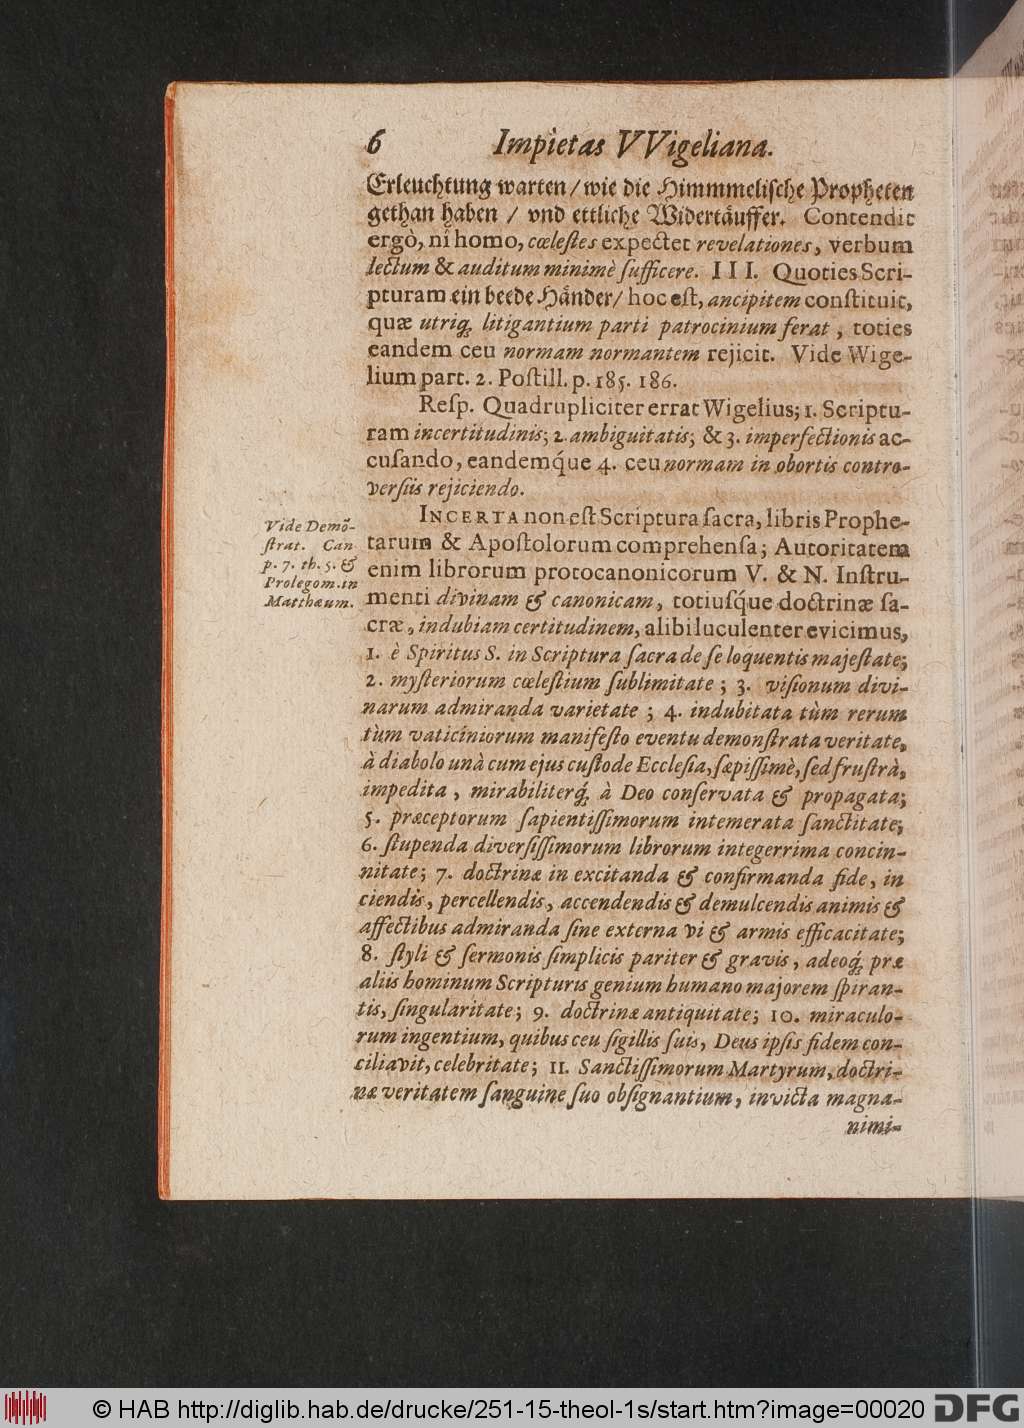 6 Impietas VVigeliana.
Erleuchtung warten / wie die Himmmelische Propheten
gethan haben / vnd ettliche Widertäuffer. Contendit
ergò, ni homo, cœlestes expectet revelationes, verbum
lectum & auditum minimè sufficere. III. Quoties Scri-
pturam ein beede Händer / hoc est, ancipitem constituit,
quæ utriq; litigantium parti patrocinium ferat, toties
eandem ceu normam normantem rejicit. Vide Wige-
lium part. 2. Postill. p. 185. 186.
Resp. Quadrupliciter errat Wigelius; 1. Scriptu-
ram incertitudinis; 2. ambiguitatis; & 3. imperfectionis ac-
cusando, eandemq́ue 4. ceu normam in obortis contro-
versiis rejiciendo.
INCERTA non est Scriptura sacra, libris Prophe-
tarum & Apostolorum comprehensa; Autoritatem
enim librorum protocanonicorum V. & N. Instru-
menti divinam & canonicam, totiusq́ue doctrinæ sa-
cræ, indubiam certitudinem, alibi luculenter evicimus,
Vide Demõ-
strat. Can
p. 7. th. 5. &
Prolegom. in
Matthæum.
1. è Spiritus S. in Scriptura sacra de se loquentis majestate;
2. mysteriorum cœlestium sublimitate; 3. visionum divi-
narum admiranda varietate; 4. indubitata tùm rerum
tùm vaticiniorum manifesto eventu demonstrata veritate,
à diabolo unà cum ejus custode Ecclesia, sæpissimè, sed frustrà,
impedita, mirabiliterq́; à Deo conservata & propagata;
5. præceptorum sapientissimorum intemerata sanctitate;
6. stupenda diversissimorum librorum integerrima concin-
nitate; 7. doctrinæ in excitanda & confirmanda fide, in
ciendis, percellendis, accendendis & demulcendis animis &
affectibus admiranda sine externa vi & armis efficacitate;
8. styli & sermonis simplicis pariter & gravis, adeoq́; præ
aliis hominum Scripturis genium humano majorem spiran-
tis, singularitate; 9. doctrinæ antiquitate; 10. miraculo-
rum ingentium, quibus ceu sigillis suis, Deus ipsis fidem con-
ciliavit, celebritate; 11. Sanctissimorum Martyrum, doctri-
næ veritatem sanguine suo obsignantium, invicta magna-
nimi-
© HAB http://diglib.hab.de/drucke/251-15-theol-1s/start.htm?image=00020
DFG